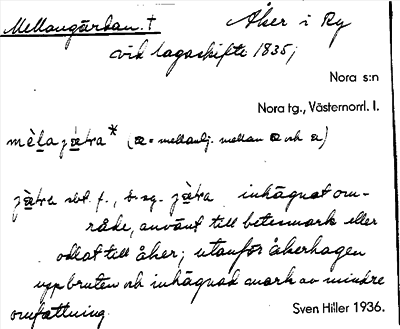 Mellangärdan. † Åker i Ry
vid lagaskifte 1835;
Nora s:n
Nora tg., Västernorrl. l.
mèlagætra* (æ = mellanlj. mellan æ och a)
gætra sbt. f., b. sg. gætra inhägnat om-
råde, använt till betesmark eller
odlat till åker; utanför åkerhagen
uppbruten och inhägnad mark av mindre
omfattning.
Sven Hiller 1936.